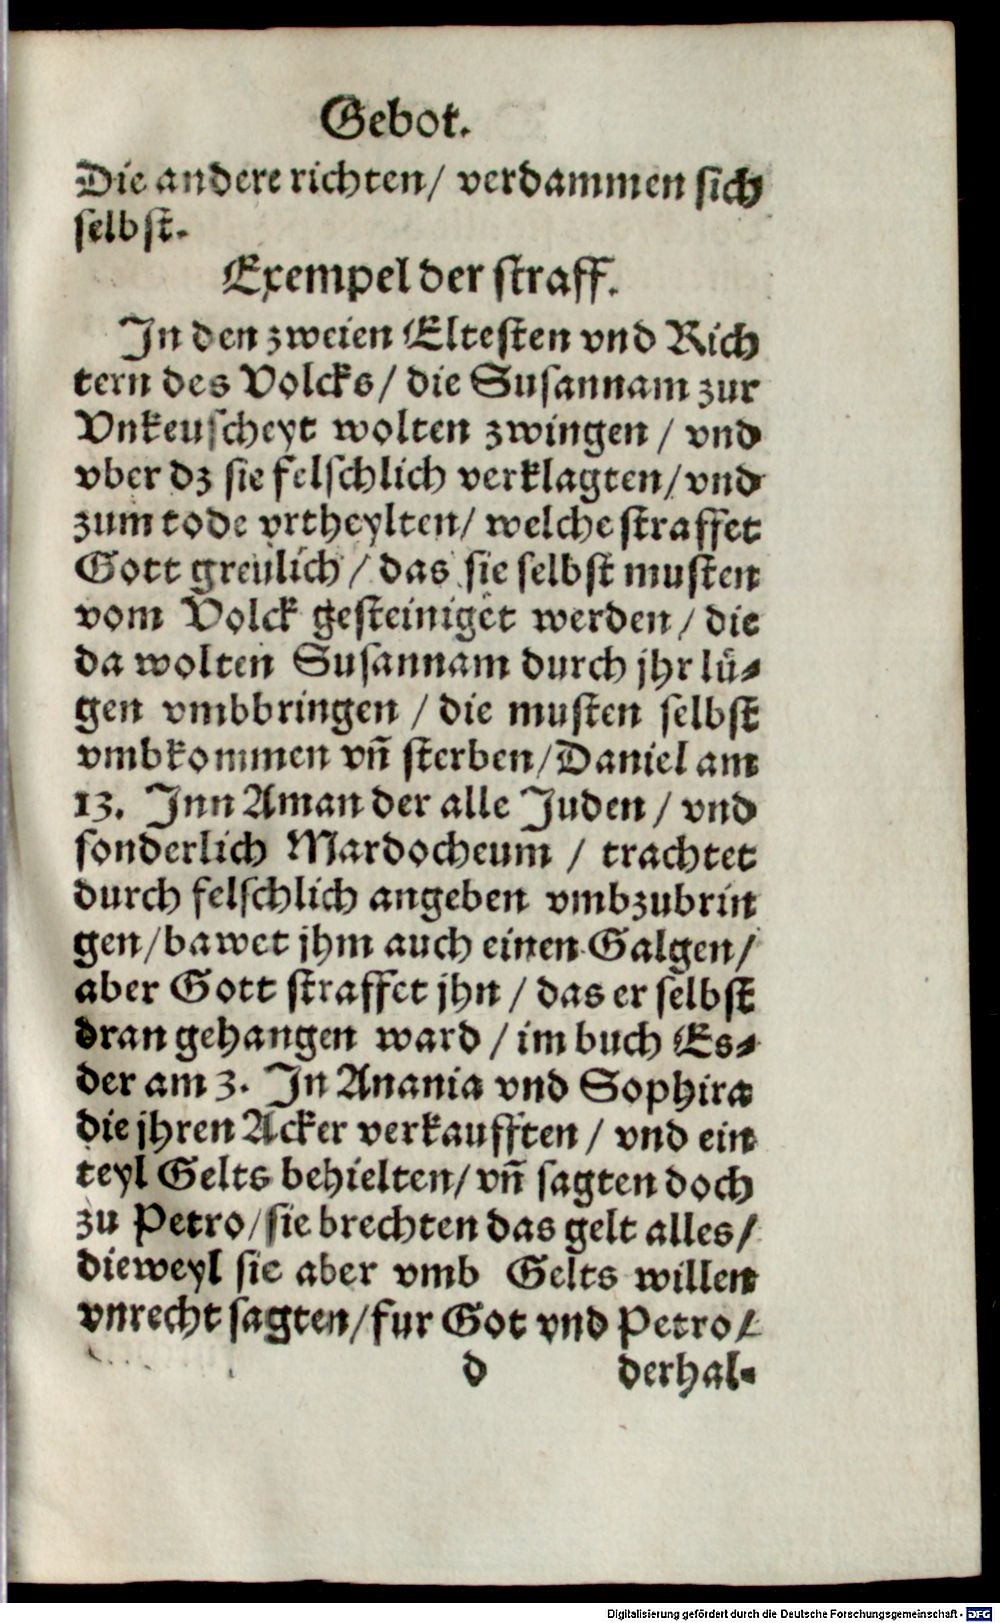 Gebot.
Die andere richten/ verdammen sich
selbst.
Exempel der straff.
In den zweien Eltesten vnd Rich
tern des Volcks/ die Susannam zur
Vnkeuscheyt wolten zwingen / vnd
vber dz sie felschlich verklagten/ vnd
zum tode vrtheylten/ welche straffet
Gott greulich / das sie selbst musten
vom Volck gesteiniget werden / die
da wolten Susannam durch jhr lů-
gen vmbbringen / die musten selbst
vmbkommen vñ sterben/ Daniel am
13. Inn Aman der alle Juden / vnd
sonderlich Mardocheum / trachtet
durch felschlich angeben vmbzubrin
gen/ bawet jhm auch einen Galgen/
aber Gott straffet jhn / das er selbst
dran gehangen ward / im buch Es-
der am 3. In Anania vnd Sophira
die jhren Acker verkaufften / vnd ein
teyl Gelts behielten/ vñ sagten doch
zu Petro/ sie brechten das gelt alles/
dieweyl sie aber vmb Gelts willen
vnrecht sagten/ fur Got vnd Petro/
d derhal-
Digitalisierung gefördert durch die Deutsche Forschungsgemeinschaft - DFG